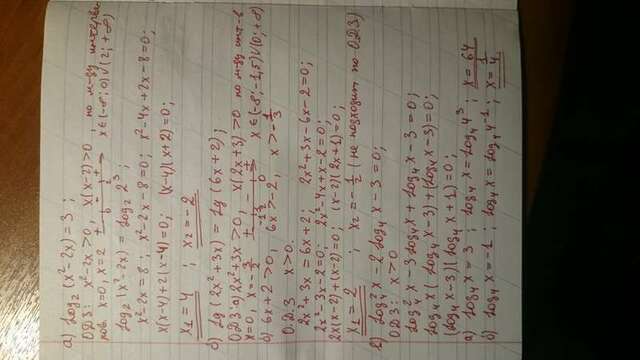 а) log₂ (x²-2x) = 3 ;
О.Д.З: x²-2x>0, x(x-2)>0, по м-ду интервалов
x=0, x=2 x∈(-∞; 0)∪(2; +∞)
log₂ (x²-2x) = log₂ 2³
x²-2x=8; x²-2x-8=0; x²-4x+2x-8=0;
x(x-4)+2(x-4)=0; (x-4)(x+2)=0;
x₁=4 ; x₂=-2
б) lg (2x²+3x) = lg (6x+2);
О.Д.З а) 2x²+3x>0, x(2x+3)>0 по м-ду инт-в
x=0, x=-3/2 x∈(-∞; -1,5)∪(0; +∞)
б) 6x+2>0, 6x>-2, x>-1/3
О.Д.З x>0.
2x²+3x=6x+2; 2x²+3x-6x-2=0;
2x²-3x-2=0; 2x²-4x+x-2=0;
2x(x-2)+(x-2)=0; (x-2)(2x+1)=0;
x₁=2 ; x₂=-1/2 (не подходит по О.Д.З)
log₄²x-2 log₄x-3=0;
О.Д.З: x>0
log₄²x-3 log₄x+log₄x-3=0;
log₄x(log₄x-3)+(log₄x-3)=0;
(log₄x-3)(log₄x+1)=0;
а) log₄x=3 ; log₄x=log₄4³ ; x=64
б) log₄x=-1 ; log₄x=log₄4⁻¹ ; x=1/4